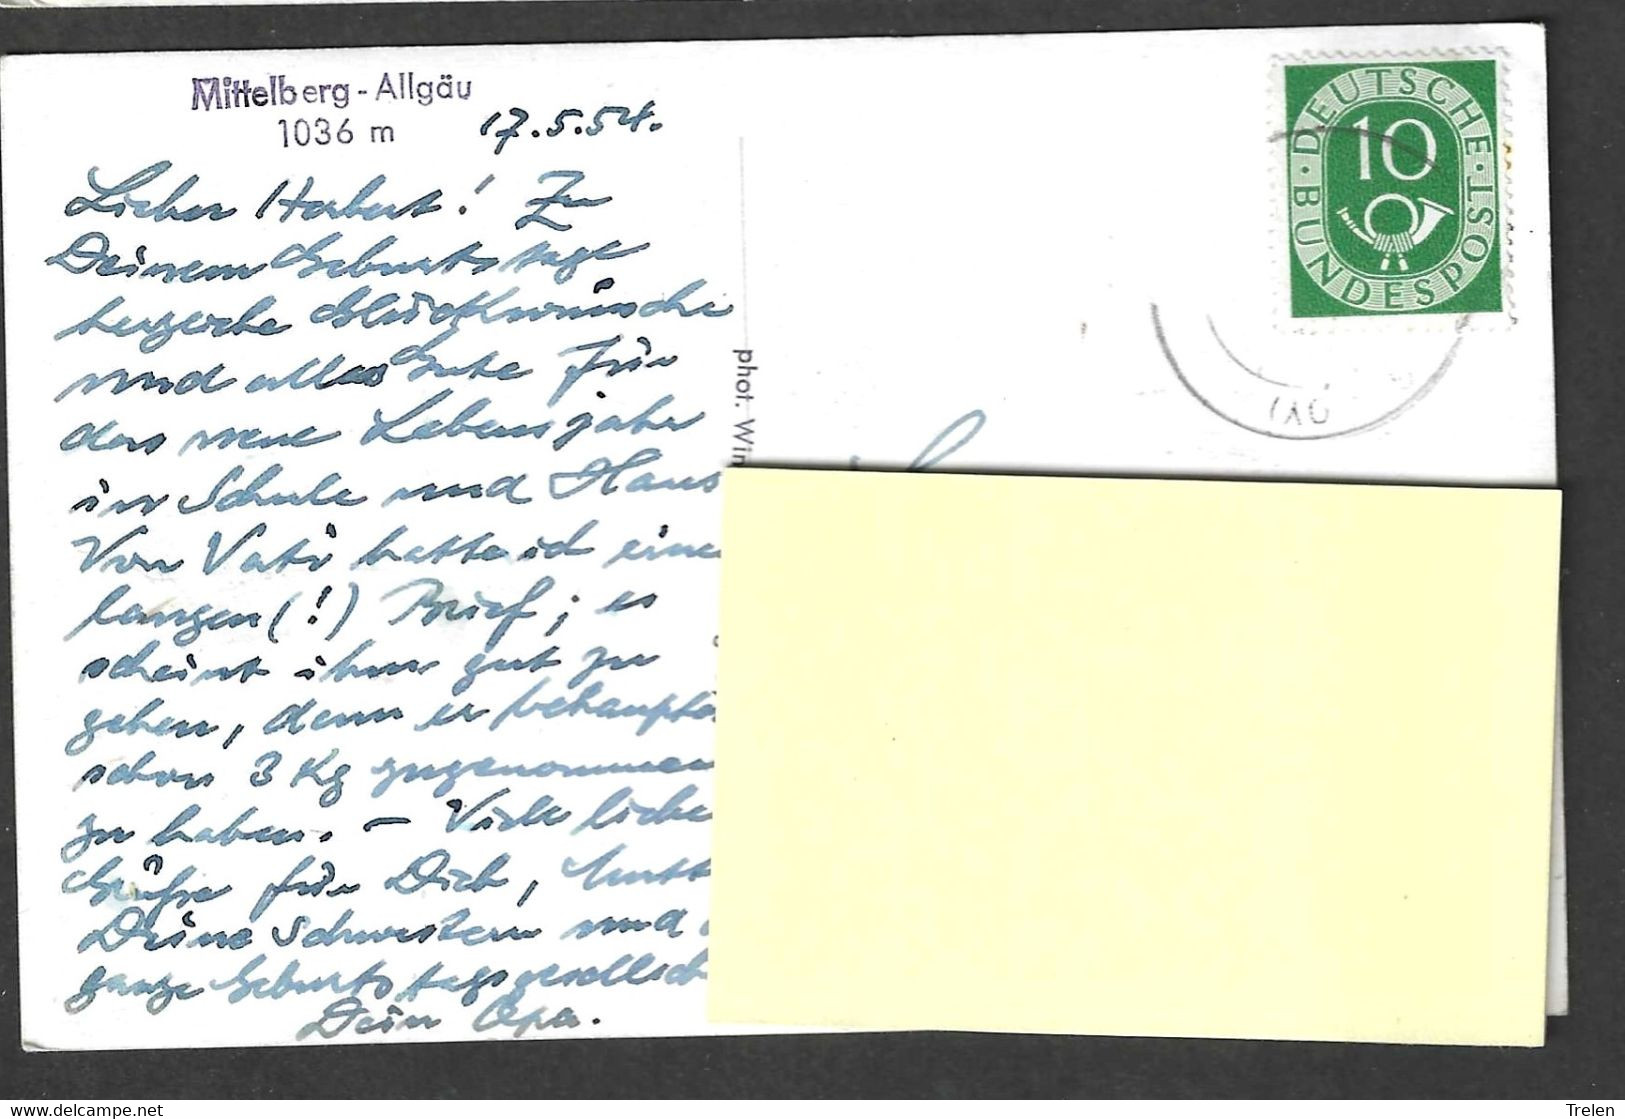 Mittelberg - Allgäu
1036 m
17.5.54.
Lieber Herbert! Zu
Deinem Geburtstage
herzliche Glückwünsche
und alles Gute für
das neue Lebensjahr
in Schule und Haus
Von Vati hatte ich eine
langen (!) Brief; es
scheint ihm gut zu
gehen, denn er behaupte
schon 3 Kg zugenommen
zu haben. – Viele liebe
Grüße für Dich, Mutt
Deine Schwestern und
ganze Geburtstagsgesellsch
Dein Opa.
phot. Win
DEUTSCHE BUNDESPOST
10
Trelen
www.delcampe.net